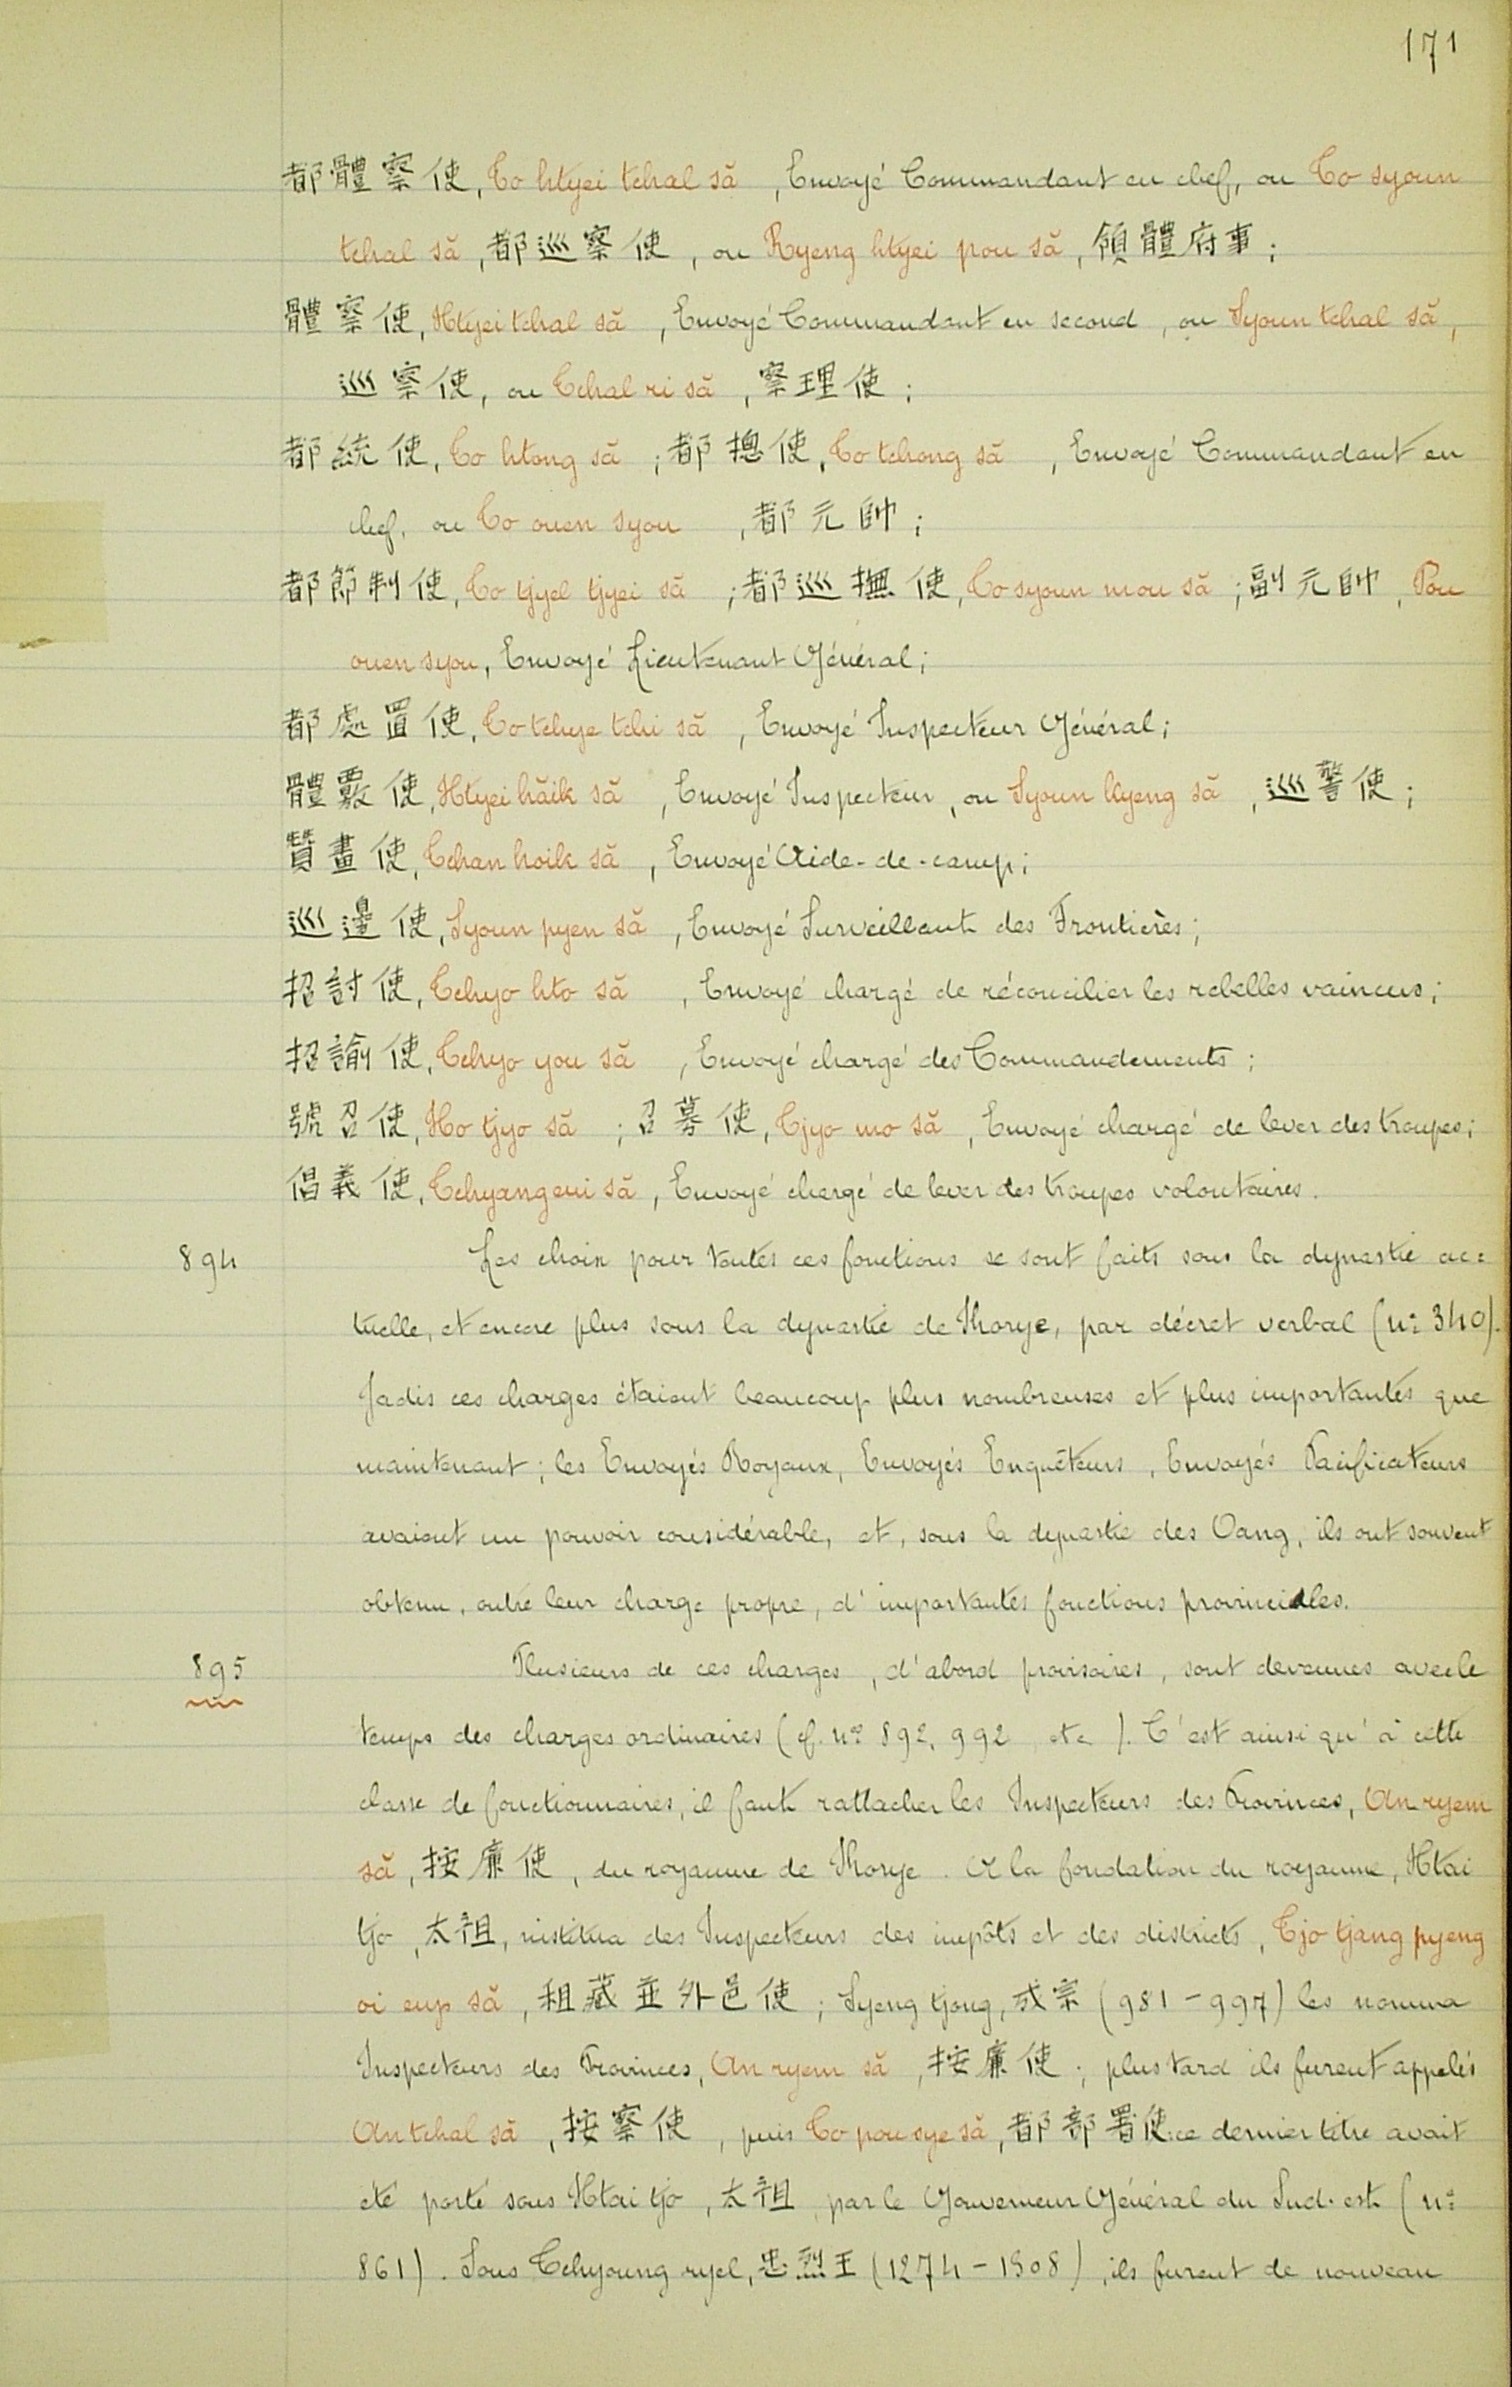 171
都體察使, To htyei tchal să, Envoyé Commandant en chef, ou To syoun
tchal să, 都巡察使, ou Ryeng htyei pou să, 領體府事;
體察使, Htyei tchal să, Envoyé Commandant en second, ou Syoun tchal să,
巡察使, ou Tchal ri să, 察理使;
都統使, To htong să; 都摠使, To tchong să, Envoyé Commandant en
chef, ou To ouen syou, 都元帥;
都節制使, To tjyel tjyei să; 都巡撫使, To syoun mou să; 副元帥, Pou
ouen syou, Envoyé Lieutenant Général;
都處置使, To tchye tchi să, Envoyé Inspecteur Général;
體覈使, Htyei hăik să, Envoyé Inspecteur, ou Syoun kyeng să, 巡警使;
贊畫使, Tchan hoik să, Envoyé Aide-de-camp;
巡邊使, Syoun pyen să, Envoyé Surveillant des Frontières;
招討使, Tchyo hto să, Envoyé chargé de réconcilier les rebelles vaincus;
招諭使, Tchyo you să, Envoyé chargé des Commandements;
號召使, Ho tjyo să; 召募使, Tjyo mo să, Envoyé chargé de lever des troupes;
倡義使, Tchyang eui să, Envoyé chargé de lever des troupes volontaires.
894 Les choix pour toutes ces fonctions se sont faits sous la dynastie ac=
tuelle, et encore plus sous la dynastie de Korye, par décret verbal (nº 340).
Jadis ces charges étaient beaucoup plus nombreuses et plus importantes que
maintenant; les Envoyés Royaux, Envoyés Enquêteurs, Envoyés Pacificateurs
avaient un pouvoir considérable, et, sous la dynastie des Oang, ils ont souvent
obtenu, outre leur charge propre, d'importantes fonctions provinciales.
895 Plusieurs de ces charges, d'abord provisoires, sont devenues avec le
temps des charges ordinaires (cf. nos 892, 992 etc). C'est ainsi qu'à cette
classe de fonctionnaires, il faut rattacher les Inspecteurs des Provinces, An ryem
să, 按廉使, du royaume de Korye. A la fondation du royaume, Htai
tjo, 太祖, institua des Inspecteurs des impôts et des districts, Tjo tjang pyeng
oi eup să, 租藏並外邑使; Syeng tjong, 成宗 (981-997) les nomma
Inspecteurs des Provinces, An ryem să, 按廉使; plus tard ils furent appelés
An tchal să, 按察使, puis To pou sye să, 都部署使: ce dernier titre avait
été porté sous Htai tjo, 太祖, par le Gouverneur Général du Sud-est (nº
861). Sous Tchyoung ryel, 忠烈王 (1274-1308), ils furent de nouveau